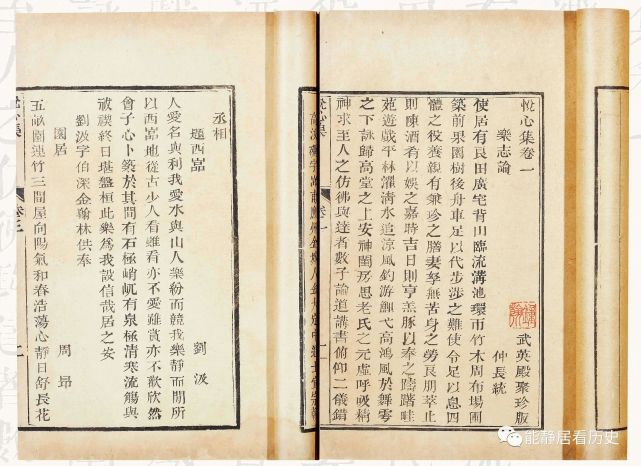 悅心集卷一　武英殿聚珍版
樂志論　仲長統
使居有良田廣宅背山臨流溝池環帀竹木周布場圃
築前果園樹後舟車足以代步涉之難使令足以息四
體之役養親有兼珍之膳妻孥無苦身之勞良朋萃止
則陳酒肴以娛之嘉時吉日則亨羔豚以奉之躊躇畦
苑遊戲平林濯清水追涼風釣游鯉弋高鴻風於舞雩
之下詠歸高堂之上安神閨房思老氏之元虛呼吸精
神求至人之仿彿與達者數子論道講書俯仰二儀錯
悅心集　卷一　一
丞相
題西嵓　劉汲
人愛名與利我愛水與山人樂紛而競我樂靜而閒所
以西嵓地從古少人看雖看亦不愛雖賞亦不歡欣然
會予心卜築於其間有石極峭屼有泉極清寒流觴與
祓禊終日堪盤桓此樂為我設信哉居之安
劉汲字伯深金翰林供奉
園居　周昂
五畝園連竹三間屋向陽氣和春浩蕩心靜日舒長花
悅心集　卷三　二
能静居看历史